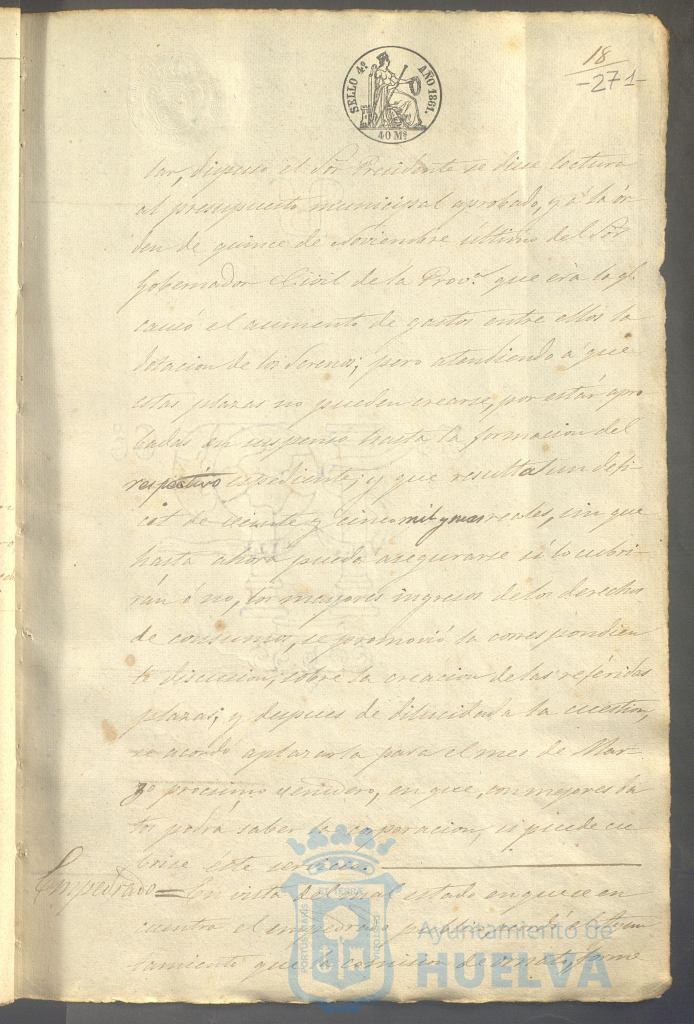 SELLO 4º AÑO 1861.
40 Ms
18
-271-
tar, dispuso el Sor Presidente se diese lectura
al presupuesto municipal aprobado, y a la ór-
den de quince de Noviembre último del Sor
Gobernador Civil de la Prova que era la qe
causó el aumento de gastos entre ellos la
dotacion de los Serenos; pero atendiendo á que
estas plazas no pueden crearse, por estár apro
badas en suspenso hasta la formacion del
respectivo espediente; y que resulta un defi-
cit de veinte y cinco mil y mas reales, sin que
hasta ahora pueda asegurarse si lo cubri-
rán ó no, los mayores ingresos de los derechos
de consumos, se promovió la correspondien
te discusion, sobre la creacion de las referidas
plazas; y despues de dilucidada la cuestion,
se acordó aplazarla para el mes de Mar-
zo procsimo venidero, en que, con mejores da
tos podrá saber la corporacion, si puede cu
brirse éste servicio.
Empedrado = En vista del mal estado en que se en
cuentra el empedrado publico acordó el Ayun
tamiento que la comision de ornato, forme
Ayuntamiento de
HUELVA